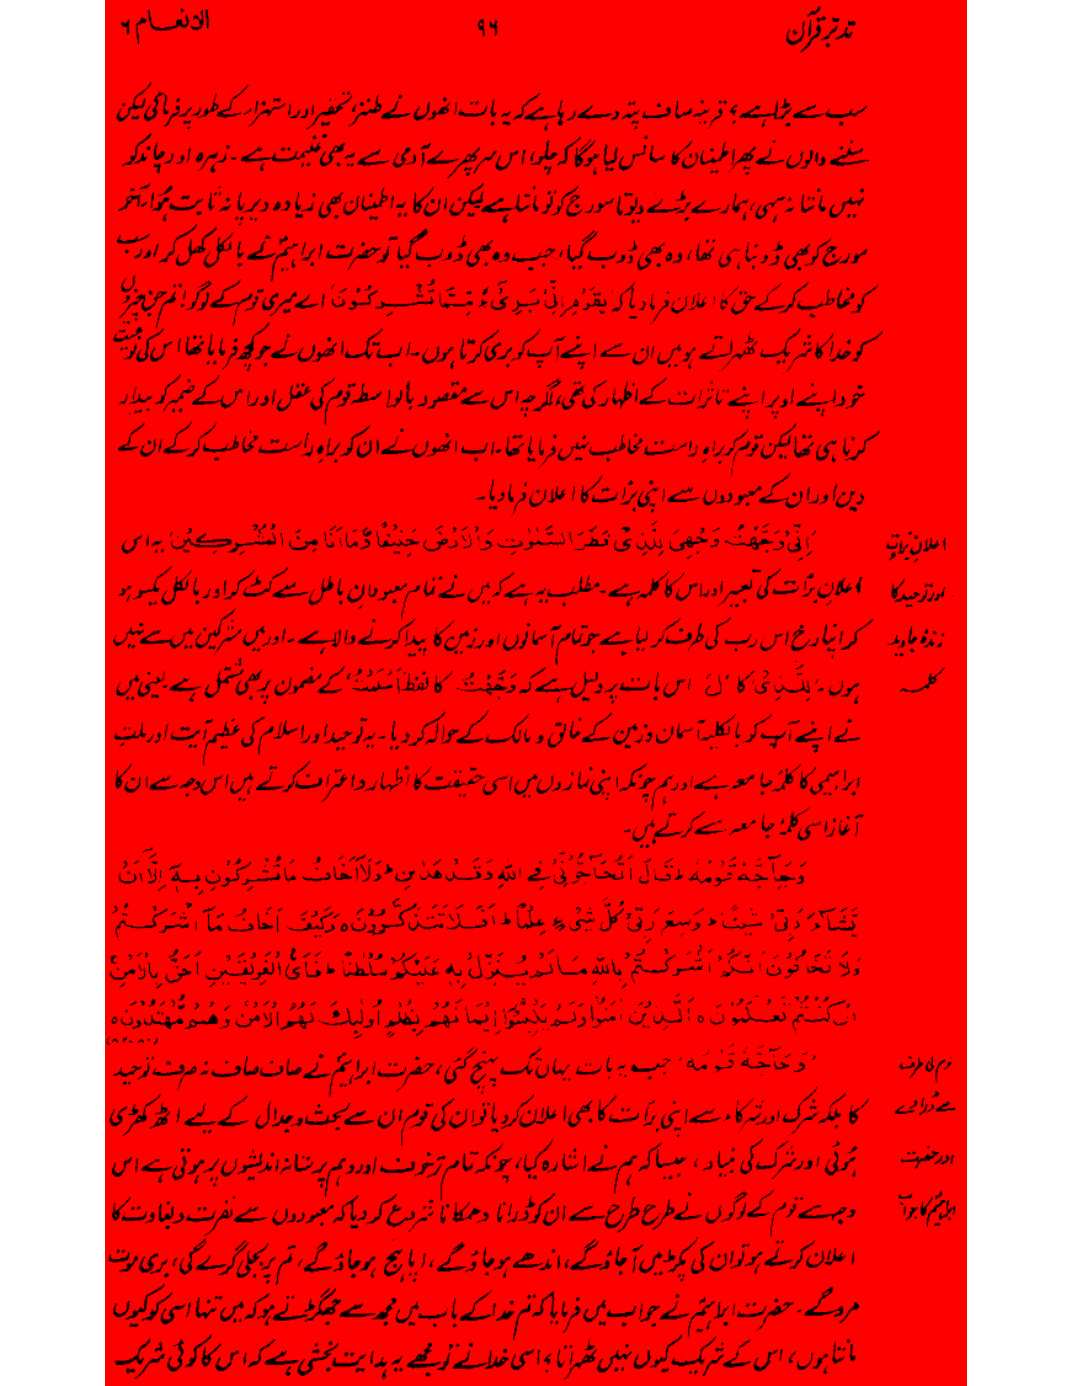 تدبر قرآن ۹۶ الانعام ۶
سب سے بڑا ہے؟ قرینہ صاف پتہ دے رہا ہے کہ یہ بات انھوں نے طنز، تحقیر اور استہزاء کے طور پر فرمائی لیکن
سننے والوں نے پھر اطمینان کا سانس لیا ہوگا کہ چلو، اس سرپھرے آدمی سے یہ بھی غنیمت ہے۔ زہرہ اور چاند کو
نہیں مانتا نہ سہی، ہمارے بڑے دیوتا سورج کو تو مانتا ہے لیکن ان کا یہ اطمینان بھی زیادہ دیرپا نہ ثابت ہوا۔ آخر
سورج کو بھی ڈوبنا ہی تھا، وہ بھی ڈوب گیا، جب وہ بھی ڈوب گیا تو حضرت ابراہیمؑ نے بالکل کھل کر اور سب
کو مخاطب کر کے حق کا اعلان فرما دیا کہ یٰقَوْمِ اِنِّیْ بَرِیْٓءٌ مِّمَّا تُشْرِکُوْنَ، اے میری قوم کے لوگو! تم جن چیزوں
کو خدا کا شریک ٹھہراتے ہو میں ان سے اپنے آپ کو بری کرتا ہوں۔ اب تک انھوں نے جو کچھ فرمایا تھا اس کی نوعیت
خود اپنے اوپر اپنے تاثرات کے اظہار کی تھی، اگرچہ اس سے مقصود بالواسطہ قوم کی عقل اور اس کے ضمیر کو بیدار
کرنا ہی تھا لیکن قوم کو براہِ راست مخاطب نہیں فرمایا تھا۔ اب انھوں نے ان کو براہِ راست مخاطب کر کے ان کے
دین اور ان کے معبودوں سے اپنی برٔات کا اعلان فرما دیا۔
اعلانِ برٔات اِنِّیْ وَجَّهْتُ وَجْهِیَ لِلَّذِیْ فَطَرَ السَّمٰوٰتِ وَالْاَرْضَ حَنِیْفًا وَّمَا اَنَا مِنَ الْمُشْرِکِیْنَ یہ اس
اور توحید کا اعلانِ برٔات کی تعبیر اور اس کا کلمہ ہے۔ مطلب یہ ہے کہ میں نے تمام معبودانِ باطل سے کٹ کر اور بالکل یکسو ہو
زندۂ جاوید کر اپنا رخ اس رب کی طرف کر لیا ہے جو تمام آسمانوں اور زمین کا پیدا کرنے والا ہے۔ اور میں مشرکین میں سے نہیں
کلمہ ہوں۔ لِلَّذِیْ کا ’لَ‘ اس بات پر دلیل ہے کہ وَجَّهْتُ کا لفظ اَسْلَمْتُ کے مضمون پر بھی مشتمل ہے یعنی میں
نے اپنے آپ کو بالکلیہ آسمان و زمین کے خالق و مالک کے حوالہ کر دیا۔ یہ توحید اور اسلام کی عظیم آیت اور ملتِ
ابراہیمی کا کلمۂ جامعہ ہے اور ہم چونکہ اپنی نمازوں میں اسی حقیقت کا اظہار و اعتراف کرتے ہیں اس وجہ سے ان کا
آغاز اسی کلمۂ جامعہ سے کرتے ہیں۔
وَحَآجَّهٗ قَوْمُهٗ ؕ قَالَ اَتُحَآجُّوْٓنِّیْ فِی اللّٰهِ وَقَدْ هَدٰىنِ ؕ وَلَآ اَخَافُ مَا تُشْرِکُوْنَ بِهٖٓ اِلَّآ اَنْ
یَّشَآءَ رَبِّیْ شَیْئًا ؕ وَسِعَ رَبِّیْ کُلَّ شَیْءٍ عِلْمًا ؕ اَفَلَا تَتَذَکَّرُوْنَ ه وَکَیْفَ اَخَافُ مَآ اَشْرَکْتُمْ
وَلَا تَخَافُوْنَ اَنَّکُمْ اَشْرَکْتُمْ بِاللّٰهِ مَا لَمْ یُنَزِّلْ بِهٖ عَلَیْکُمْ سُلْطٰنًا ؕ فَاَیُّ الْفَرِیْقَیْنِ اَحَقُّ بِالْاَمْنِ
اِنْ کُنْتُمْ تَعْلَمُوْنَ ه اَلَّذِیْنَ اٰمَنُوْا وَلَمْ یَلْبِسُوْٓا اِیْمَانَهُمْ بِظُلْمٍ اُولٰٓئِکَ لَهُمُ الْاَمْنُ وَهُمْ مُّهْتَدُوْنَ ه
’وَحَآجَّهٗ قَوْمُهٗ‘ جب یہ بات یہاں تک پہنچ گئی، حضرت ابراہیمؑ نے صاف صاف نہ صرف توحید
کا بلکہ شرک اور شرکاء سے اپنی برٔات کا بھی اعلان کر دیا تو ان کی قوم ان سے بحث و جدال کے لیے اٹھ کھڑی
اور حضرت ہوئی اور شرک کی بنیاد، جیسا کہ ہم نے اشارہ کیا، چونکہ تمام تر خوف اور وہم پرستانہ اندیشوں پر ہوتی ہے اس
ابراہیمؑ کا جواب وجہ سے قوم کے لوگوں نے طرح طرح سے ان کو ڈرانا دھمکانا شروع کر دیا کہ معبودوں سے نفرت و بغاوت کا
اعلان کرتے ہو تو ان کی پکڑ میں آ جاؤ گے، اندھے ہو جاؤ گے، اپاہج ہو جاؤ گے، تم پر بجلی گرے گی، بری موت
مرو گے۔ حضرت ابراہیمؑ نے جواب میں فرمایا کہ تم خدا کے باب میں مجھ سے جھگڑتے ہو کہ میں تنہا اسی کو کیوں
مانتا ہوں، اس کے شریک کیوں نہیں ٹھہراتا؟ اسی خدا نے تو مجھے یہ ہدایت بخشی ہے کہ اس کا کوئی شریک